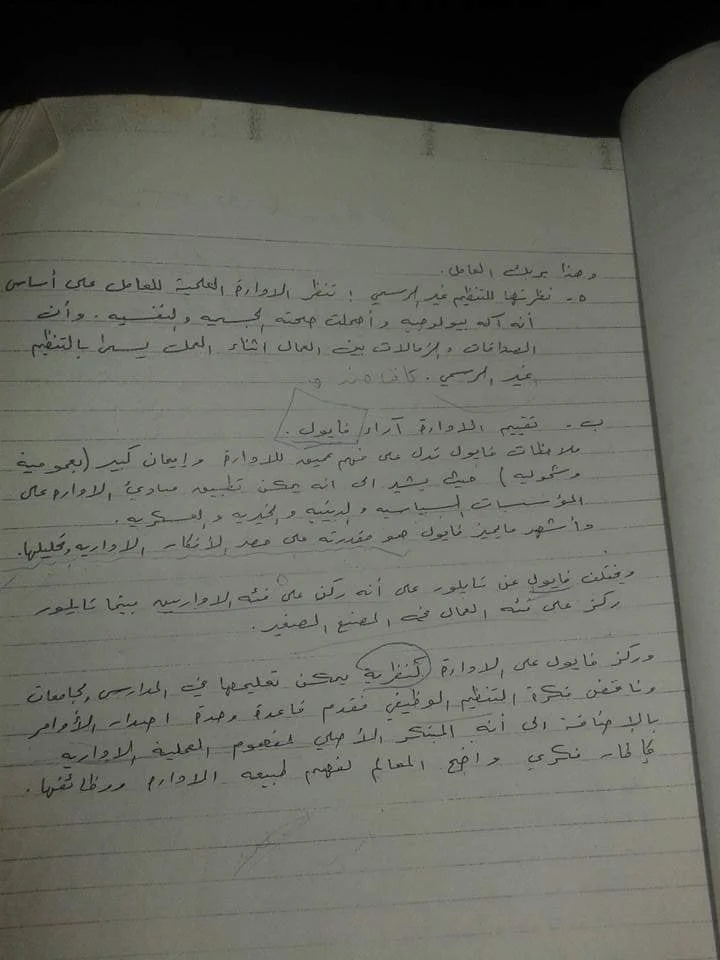 وهذا يربك العامل.
٥- نظرتها للتنظيم غير الرسمي : تنظر الادارة العلمية للعامل على أساس
أنه آله بيولوجيه وأهملت صحته الجسميه والنفسيه. وأن
الصداقات والزمالات بين العمال اثناء العمل يسمى بالتنظيم
الغير الرسمي.
ب- تقييم الادارة آراء فايول.
ملاحظات فايول تدل على فهم عميق للادارة وإيمان كبير (بعمومية
وشموليه) حيث يشير الى انه يمكن تطبيق مبادئ الاداره على
المؤسسات السياسيه والدينيه والخيريه والعسكريه.
وأشهر مايميز فايول هو مقدرته على حصر الأفكار الاداريه وتحليلها.
ويختلف فايول عن تايلور على أنه ركز على فئه الاداريين بينما تايلور
ركز على فئه العمال في المصنع الصغير.
وركز فايول على الادارة كنظرية يمكن تعليمها في المدارس والجامعات
وناقض فكرة التنظيم الوظيفي فقدم قاعدة وحدة اصدار الأوامر
بالإضافة الى أنه المبتكر الأصلي لمفهوم العملية الاداريه
كإطار فكري واضح المعالم لفهم طبيعه الاداره ووظائفها.